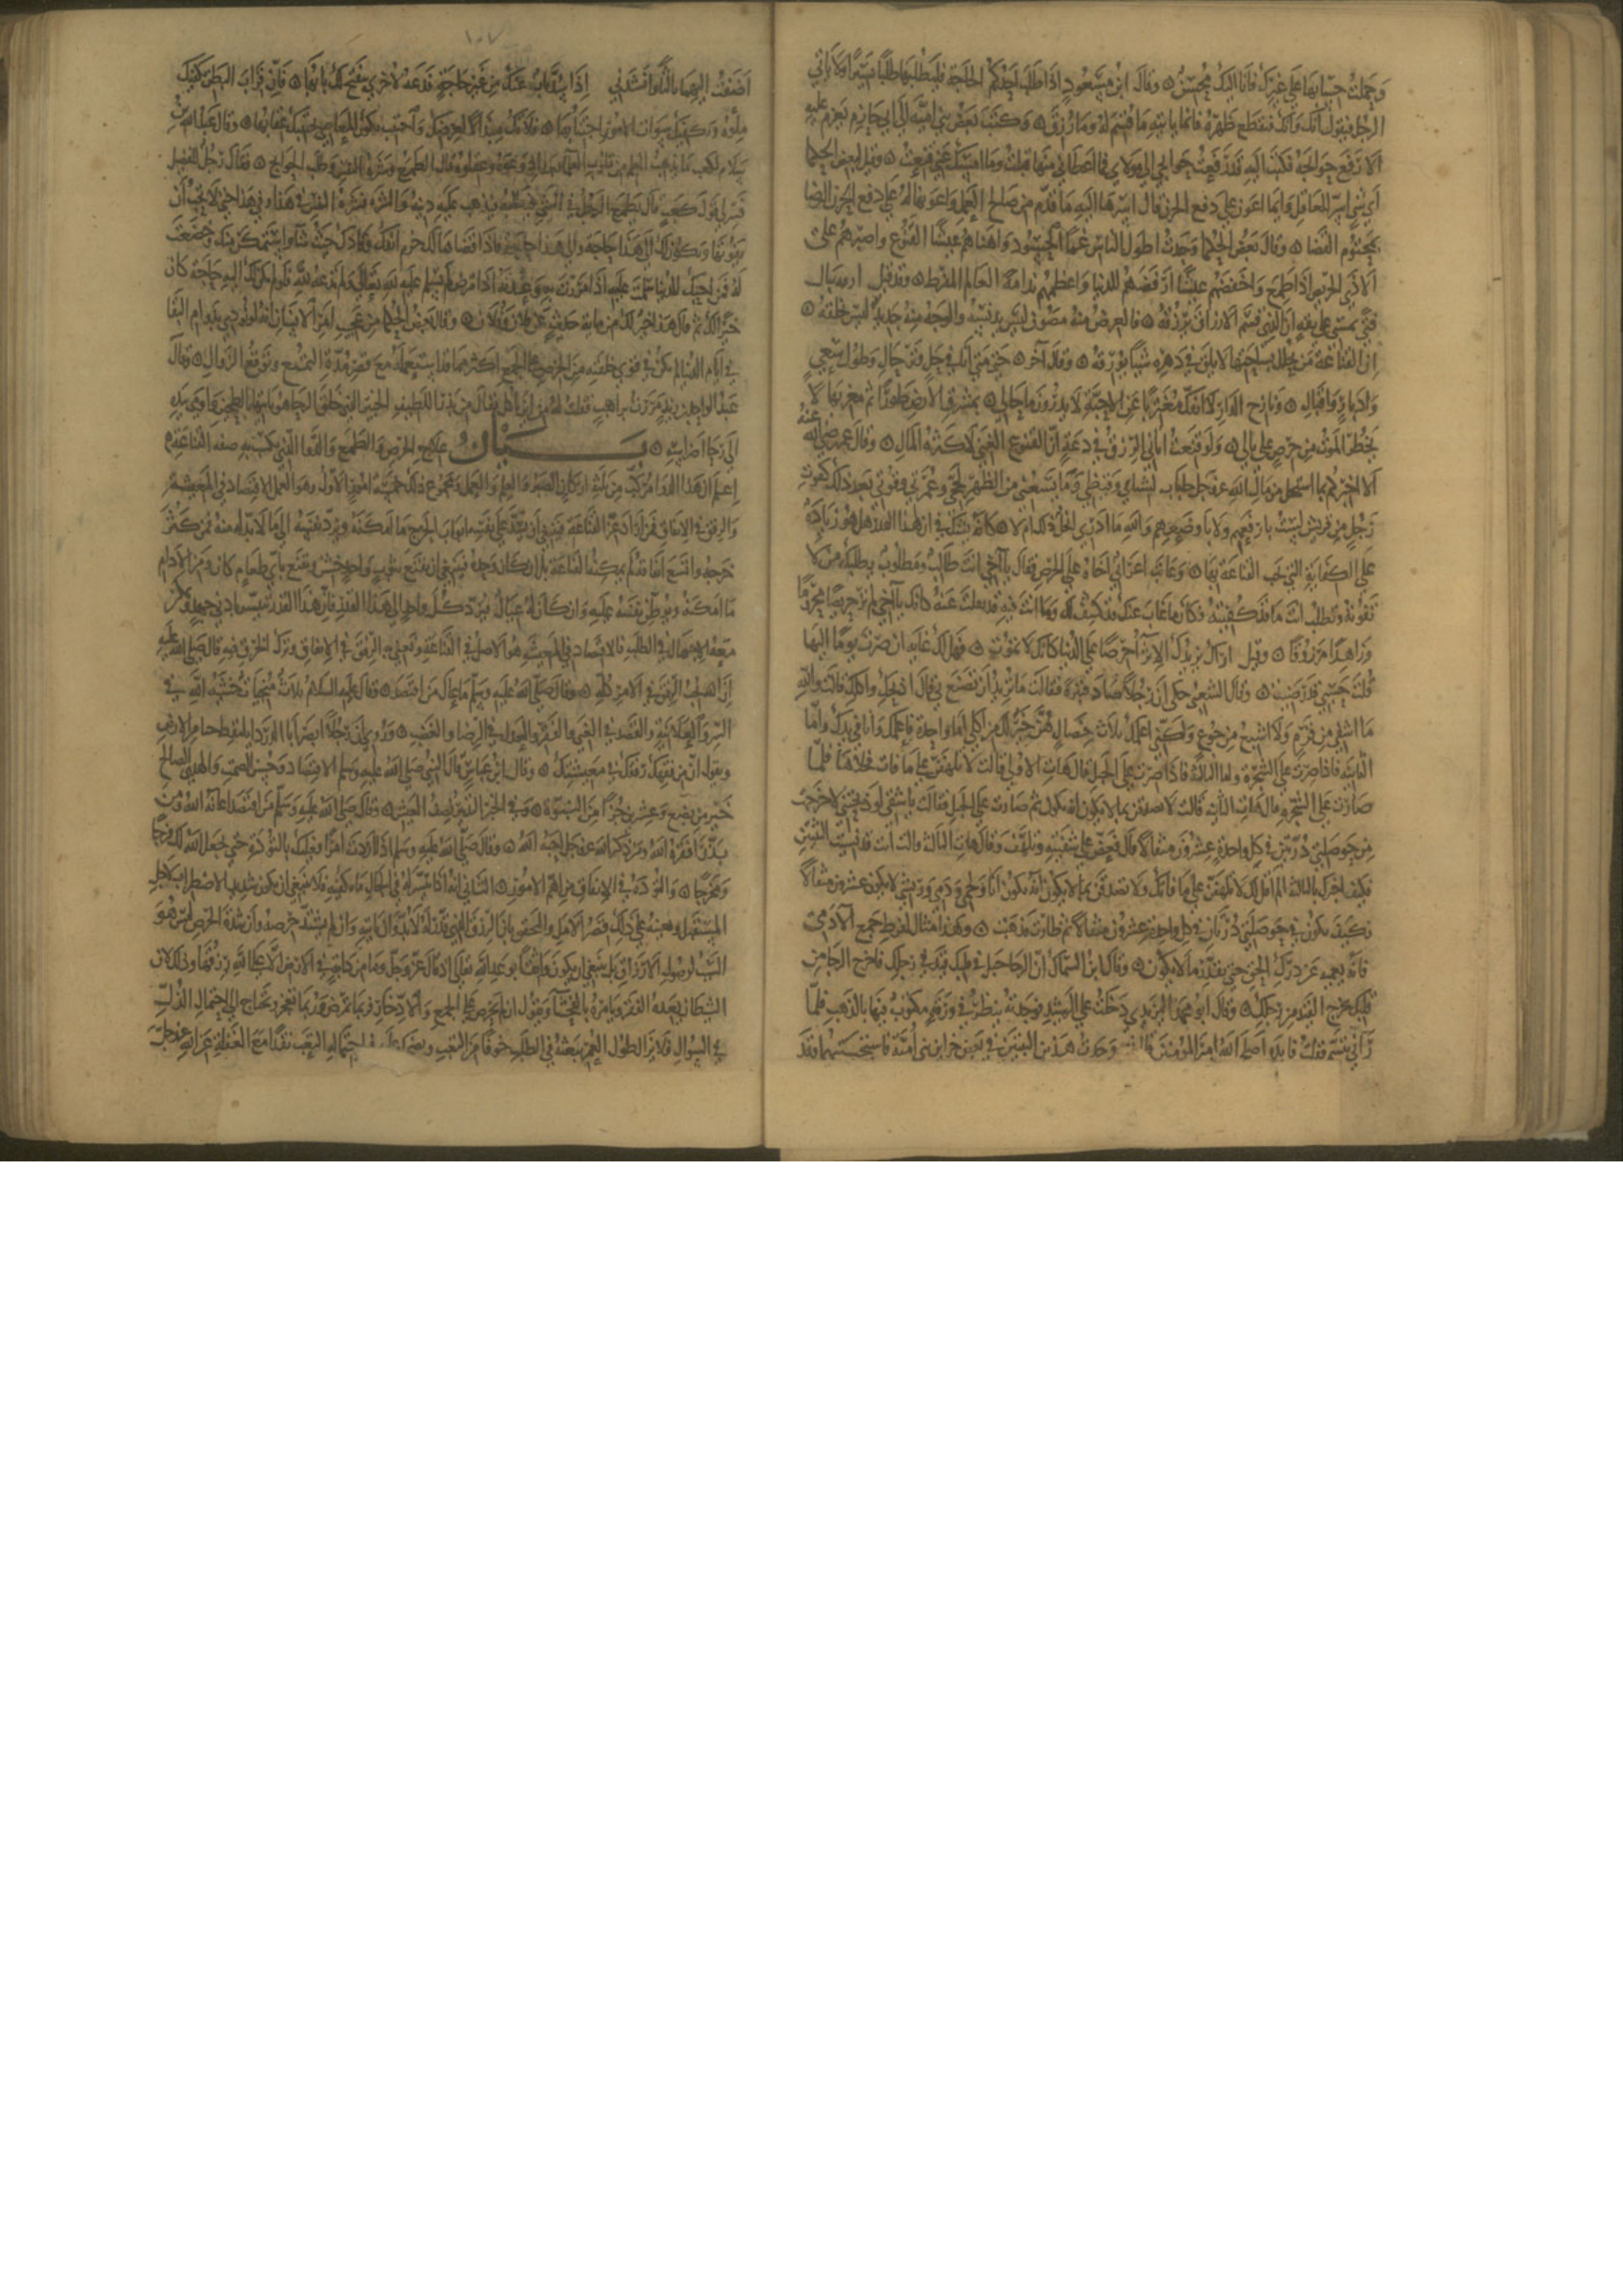 وجعلت حسابها على غيرك فانا اليك محسن ۞ وقال ابن مسعود اذا طلب احدكم الحاجة فليطلبها طلبا يسيرا ولا ياتي
الرجل فيقول انك وانك فيقطع ظهره فانما ياتيه ما قسم له وما رزق ۞ وكتب بعض بني امية الى ابي حازم يعزم عليه
الا رفع حوائجه فكتب اليه قد رفعت حوائجي الى مولاي فما اعطاني منها قبلت وما امسك عني قنعت ۞ وقيل لبعض الحكما
اي شي اسر للعاقل وايما اعون على دفع الحزن قال اسرها اليه ما قدم من صالح العمل واعونها له على دفع الحزن الرضا
بمحتوم القضا ۞ وقال بعض الحكما وجدت اطول الناس غما الحسود واهناهم عيشا القنوع واصبرهم على
الاذى الحريص اذا طمع واخفضهم عيشا ارفضهم للدنيا واعظمهم ندامة العالم المفرط ۞ وقد قيل
فتى يمسي على ثقة ان الذي قسم الارزاق يرزقه ۞ فالعرض منه مصون ليس يدنسه والوجه منه جديد ليس يخلقه ۞
ان القناعة من يحلل بساحتها لا يلق في دهره شيئا يورقه ۞ وقال آخر ۞ حتى متى انا في حل وترحال وطول سعي
وادبار واقبال ۞ ونازح الدار لا انفك مغتربا عن الاحبة لا يدرون ما حالي ۞ بمشرق الارض طورا ثم مغربها لا
يخطر الموت من حرص على بالي ۞ ولو قنعت اتاني الرزق في دعة ان القنوع الغنى لا كثرة المال ۞ وقال عمر رضي الله عنه
الا اخبركم بما استحل من مال الله عز وجل حلتان لشتاي وقيظي وما يسعني من الظهر لحجي وعمرتي وقوتي بعد ذلك كقوت
رجل من قريش ليست بارفعهم ولا باوضعهم والله ما ادري ايحل ذلك ام لا ۞ كانه شك في ان هذا القدر هل هو زيادة
على الكفاية التي تجب القناعة بها ۞ وعاتب اعرابي اخاه على الحرص فقال يا اخي انت طالب ومطلوب يطلبك من لا
تفوته وتطلب انت ما قد كفيته فكان ما غاب عنك قد كشف لك وما انت فيه قد نقلت عنه كانك يا اخي لم تر حريصا محروما
وزاهدا مرزوقا ۞ وقيل اراك يزيدك الاثراء حرصا على الدنيا كانك لا تموت ۞ فهل لك غاية ان صرت يوما اليها
قلت حسبي قد رضيت ۞ وقال الشعبي حكي ان رجلا صاد قنبرة فقالت ما تريد ان تصنع بي قال اذبحك واكلك قالت والله
ما اشفي من قرم ولا اشبع من جوع ولكني اعلمك ثلاث خصال هن خير لك من اكلي اما واحدة فاعلمك وانا في يدك واما
الثانية فاذا صرت على الشجرة واما الثالثة فاذا صرت على الجبل قال هات الاولى قالت لا تلهفن على ما فات فخلاها فلما
صارت على الشجرة قال هات الثانية قالت لا تصدقن بما لا يكون انه يكون ثم صارت على الجبل فقالت يا شقي لو ذبحتني لاخرجت
من حوصلتي درتين في كل واحدة عشرون مثقالا قال فعض على شفتيه وتلهف وقال هات الثالثة قالت انت قد نسيت الثنتين
فكيف اخبرك بالثالثة الم اقل لك لا تلهفن على ما فاتك ولا تصدقن بما لا يكون انه يكون انا ولحمي ودمي وريشي لا يكون عشرون مثقالا
فكيف يكون في حوصلتي درتان في كل واحدة عشرون مثقالا ثم طارت فذهبت ۞ وهذا مثال لفرط طمع الآدمي
فانه يعميه عن درك الحق حتى يقدر ما لا يكون ۞ وقال ابن السماك ان الرجا حبل في قلبك وقيد في رجلك فاخرج الرجا من
قلبك يخرج القيد من رجلك ۞ وقال ابو محمد اليزيدي دخلت على الرشيد فوجدته ينظر في ورقة مكتوب فيها بالذهب فلما
رآني تبسم فقلت فايدة اصلح الله امير المومنين قال نعم وجدت هذين البيتين في بعض خزاين بني امية فاستحسنتهما وقد
اضفت اليهما ثالثا وانشدني اذا سد باب عنك من غير حاجة فدعه لاخرى ينفتح لك بابها ۞ فان قراب البطن يكفيك
ملوه ويكفيك سوات الامور اجتنابها ۞ فلا تك مبذالا لعرضك واجتنب ركوب المعاصي يجتنبك عقابها ۞ وقال عبد الله بن
سلام لكعب ما يذهب العلم من قلوب العلما بعد اذ وعوه وعقلوه قال الطمع وشره النفس وطلب الحوايج ۞ فقال رجل للفضيل
فسر لي قول كعب قال يطمع الرجل في الشي فيطلبه فيذهب عليه دينه واما الشره فشره النفس في هذا وفي هذا حتى لا يحب ان
يفوتها ويكون لك الى هذا حاجة والى هذا حاجة فاذا قضاها لك خرم انفك وقادك حيث شا واستمكن منك وخضعت
له فمن حبك للدنيا سلمت عليه اذا مررت به وعدته اذا مرض لم تسلم عليه لله تعالى ولم تعده لله فلو لم يكن لك اليه حاجة كان
خيرا لك ثم قال هذا خير لك من ماية حديث عن فلان وفلان ۞ وقال بعض الحكما من عجيب امر الانسان انه لو نودي بدوام البقا
في ايام الدنيا لم يكن في قوى خلقته من الحرص على الجمع اكثر مما قد استعمله مع قصر مدة التمتع وتوقع الزوال ۞ وقال
عبد الواحد بن زيد مررت براهب فقلت له من اين تاكل فقال من بيدر اللطيف الخبير الذي خلق الرحا هو ياتيها بالطحين واومى بيده
الى رحا اضراسه ۞ بيان علاج الحرص والطمع والدوا الذي يكتسب به صفة القناعة
اعلم ان هذا الدوا مركب من ثلثة اركان الصبر والعلم والعمل ومجموع ذلك خمسة امور الاول وهو العمل الاقتصاد في المعيشة
والرفق في الانفاق فمن اراد عز القناعة فينبغي ان يسد على نفسه ابواب الخرج ما امكنه ويرد نفسه الى ما لا بد له منه فمن كثر
خرجه واتسع انفاقه لم يمكنه القناعة بل ان كان وحده فينبغي ان يقنع بثوب واحد خشن ويقنع باي طعام كان ومن الادام
ما امكنه ويوطن نفسه عليه وان كان له عيال فيرد كل واحد الى هذا القدر فان هذا القدر يتيسر بادنى جهد ويمكن
معه الاجمال في الطلب فالاقتصاد في المعيشة هو الاصل في القناعة ونعني به الرفق في الانفاق وترك الخرق فيه قال صلى الله عليه
ان الله يحب الرفق في الامر كله ۞ وقال صلى الله عليه وسلم ما عال من اقتصد ۞ وقال عليه السلام ثلاث منجيات خشية الله في
السر والعلانية والقصد في الغنى والفقر والعدل في الرضا والغضب ۞ وروي ان رجلا ابصر ابا الدرداء يلتقط حبا من الارض
ويقول ان من فقهك رفقك في معيشتك ۞ وقال ابن عباس قال النبي صلى الله عليه وسلم الاقتصاد وحسن السمت والهدي الصالح
جزء من بضع وعشرين جزءا من النبوة ۞ وفي الخبر التدبير نصف العيش ۞ وقال صلى الله عليه وسلم من اقتصد اغناه الله ومن
بذر افقره الله ومن ذكر الله عز وجل احبه الله ۞ وقال صلى الله عليه وسلم اذا اردت امرا فعليك بالتؤدة حتى يجعل الله لك فرجا
ومخرجا ۞ والتؤدة في الانفاق من اهم الامور ۞ الثاني انه اذا تيسر له في الحال ما يكفيه فلا ينبغي ان يكون شديد الاضطراب لاجل
المستقبل ويعينه على ذلك قصر الامل والتحقق بان الرزق الذي قدر له لا بد وان ياتيه وان لم يشتد حرصه وان شدة الحرص ليس هو
السبب لوصول الارزاق بل ينبغي ان يكون واثقا بوعد الله تعالى اذ قال عز وجل وما من دابة في الارض الا على الله رزقها وذلك لان
الشيطان يعده الفقر ويامره بالفحشاء ويقول ان لم تحرص على الجمع والادخار فربما تمرض وربما تعجز وتحتاج الى احتمال الذل
في السوال فلا يزال طول العمر يتعبه في الطلب خوفا من التعب ويضحك عليه في احتماله التعب نقدا مع الغفلة عن الله عز وجل